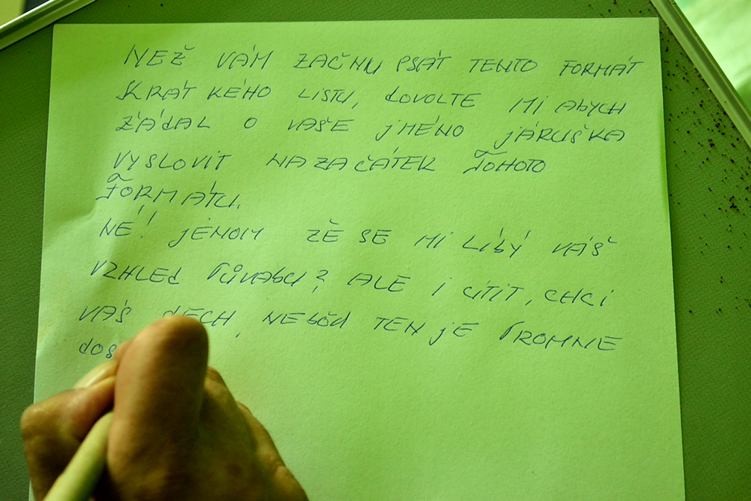 NEŽ VÁM ZAČNU PSÁT TENTO FORMÁT
SKRÁT KÉHO LISTU, DOVOLTE MI ABYCH
ŽÁDAL O VAŠE JMÉNO JÁRUŠKA
VYSLOVIT NA ZAČÁTEK TOHOTO
FORMÁTU.
NE! JENOM ZĚ SE MI LÍBÝ VÁŠ
VZHLED PŮVABU? ALE I CÍTIT, CHCI
VÁŠ DECH, NEBŎD TEN JE PROMNE
DOS